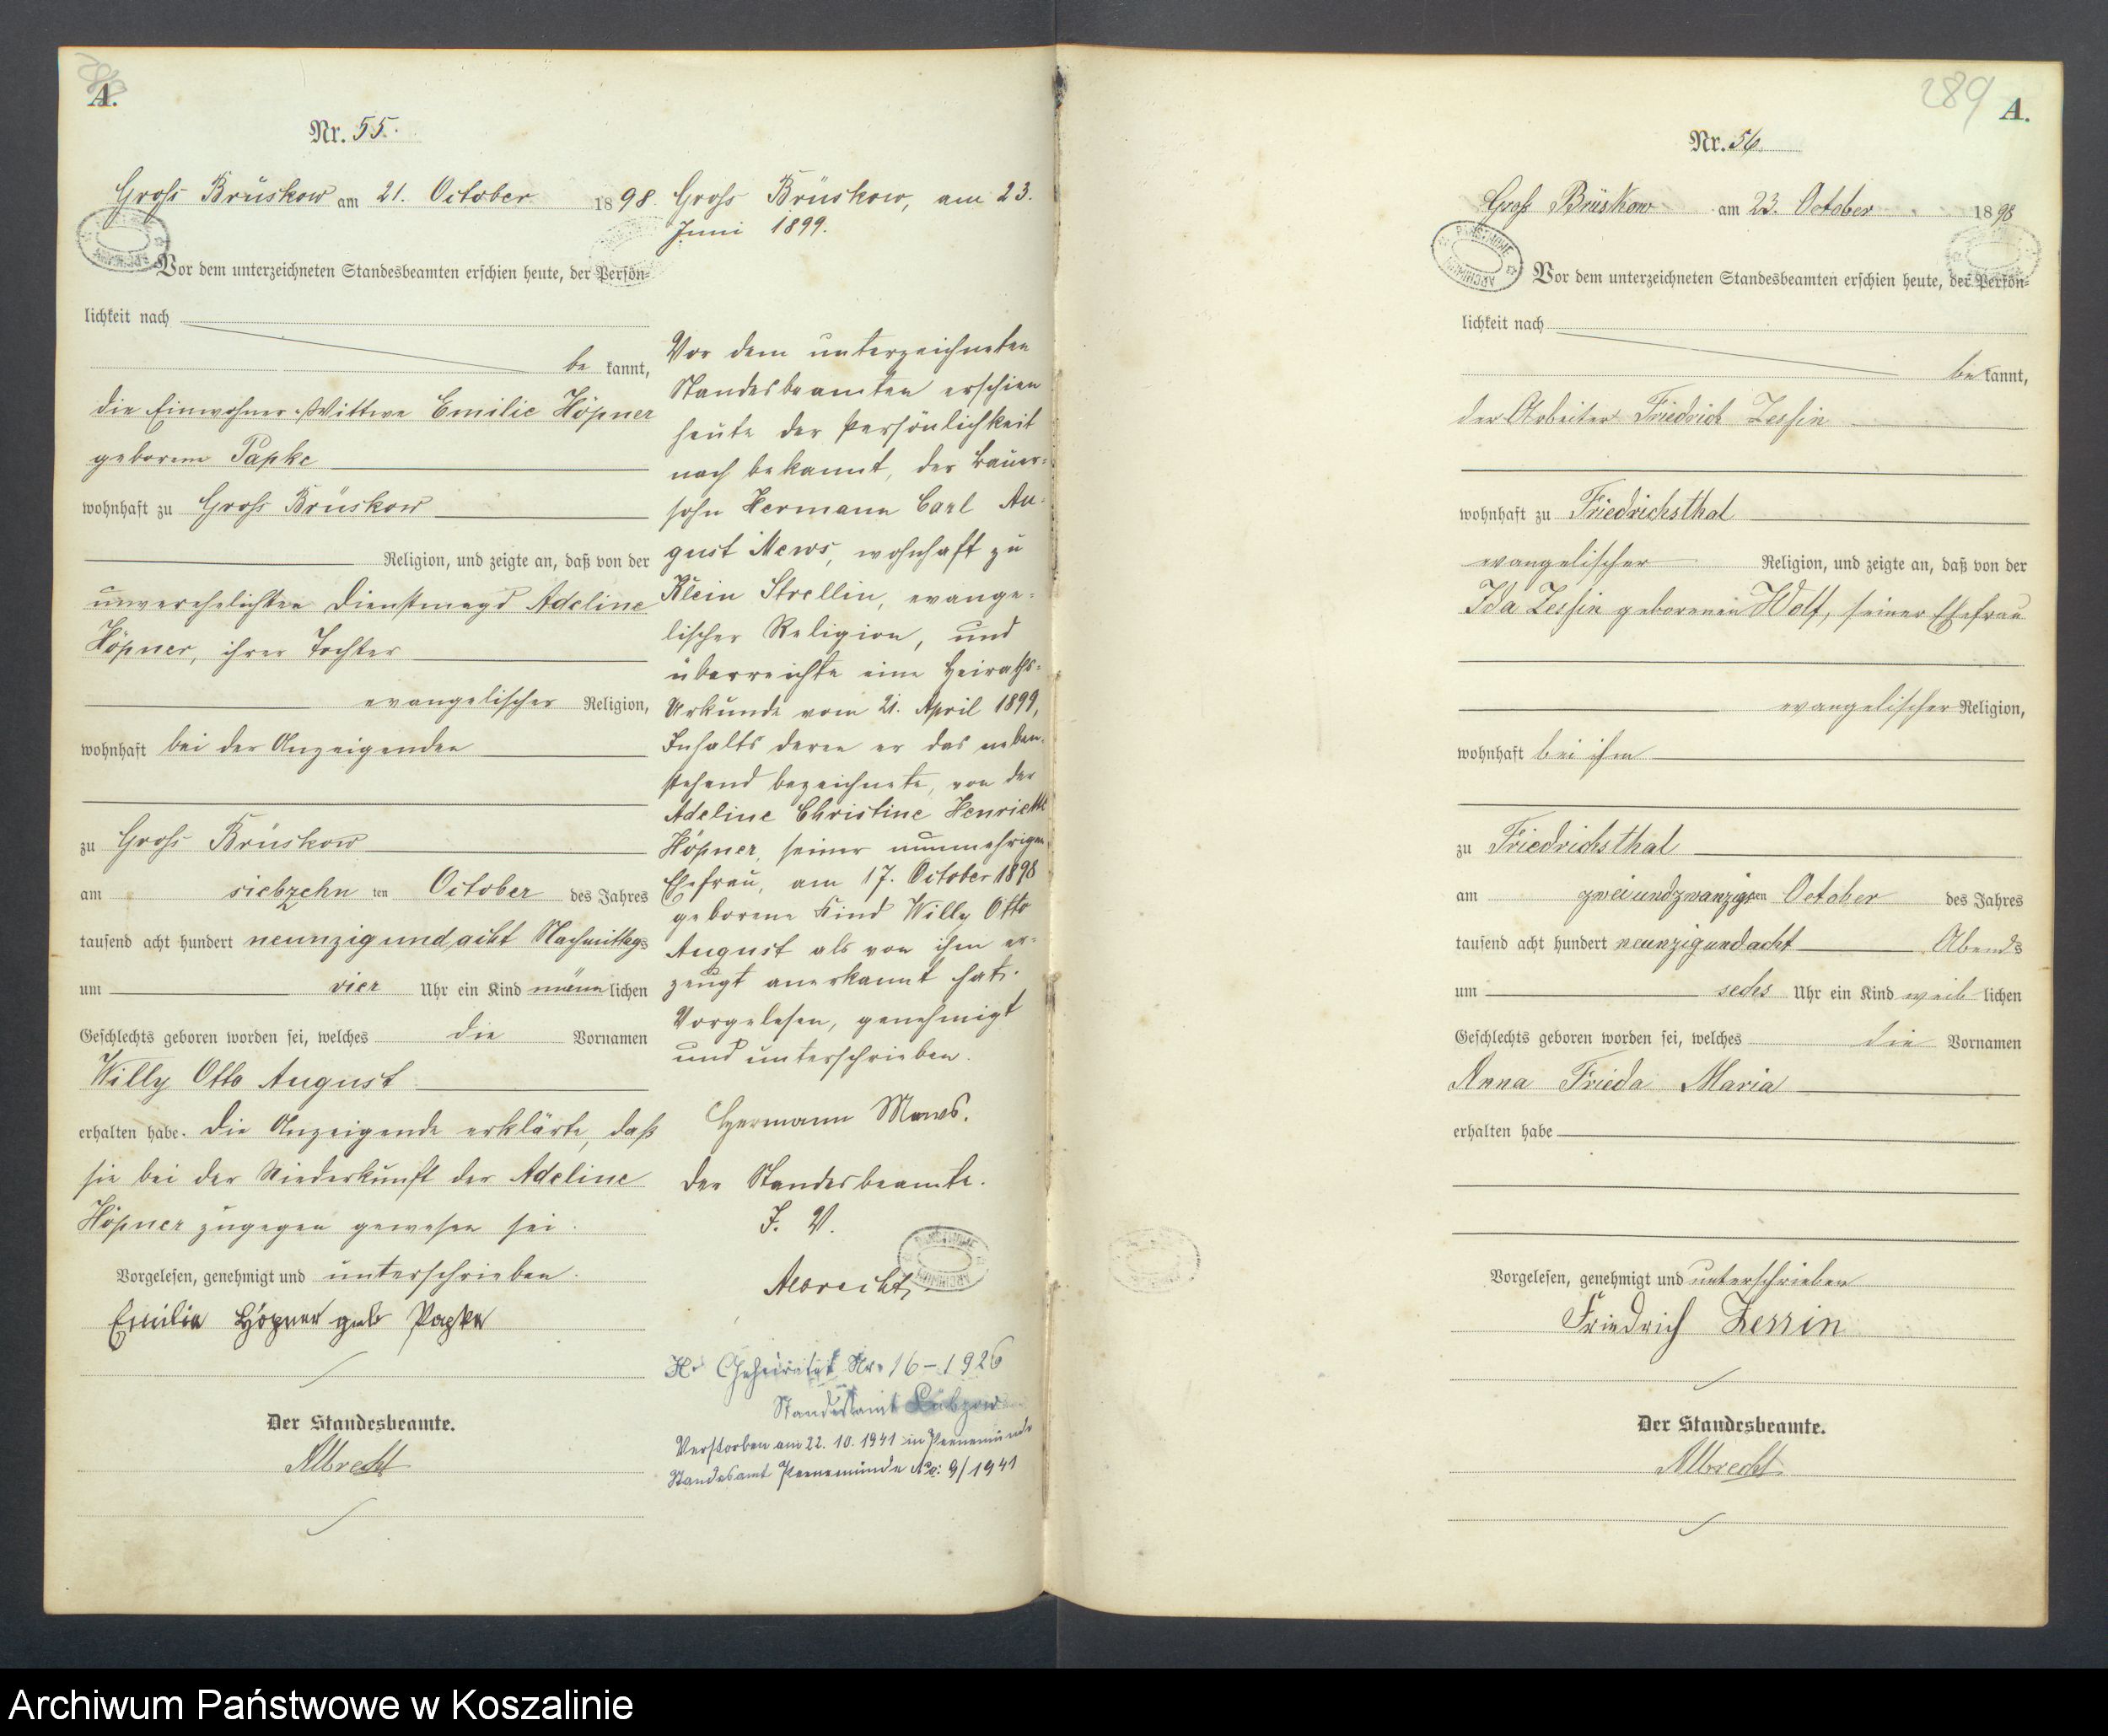 A.
Nr. 55.
Groß Brüskow am 21. October 1898
Vor dem unterzeichneten Standesbeamten erschien heute, der Persön-
lichkeit nach
be kannt,
die Einwohner-Wittwe Emilie Höpner
geborene Papke
wohnhaft zu Groß Brüskow
Religion, und zeigte an, daß von der
unverehelichten Dienstmagd Adeline
Höpner, ihrer Tochter
evangelischer Religion,
wohnhaft bei der Anzeigenden
zu Groß Brüskow
am siebzehn ten October des Jahres
tausend acht hundert neunzig und acht Nachmittags
um vier Uhr ein Kind männlichen
Geschlechts geboren worden sei, welches die Vornamen
Willy Otto August
erhalten habe. Die Anzeigende erklärte, daß
sie bei der Niederkunft der Adeline
Höpner zugegen gewesen sei.
Vorgelesen, genehmigt und unterschrieben.
Emilie Höpner geb Papke
Der Standesbeamte.
Albrecht
Groß Brüskow, am 23.
Juni 1899.
Vor dem unterzeichneten
Standesbeamten erschien
heute der Persönlichkeit
nach bekannt, der Bauer-
sohn Hermann Carl Au-
gust Mews, wohnhaft zu
Klein Strellin, evange-
lischer Religion, und
überreichte eine Heiraths-
Urkunde vom 21. April 1899,
Inhalts deren er das neben-
stehend bezeichnete, von der
Adeline Christine Henriette
Höpner, seiner nunmehrigen
Ehefrau, am 17. October 1898
geborene Kind Willy Otto
August als von ihm er-
zeugt anerkannt hat.
Vorgelesen, genehmigt
und unterschrieben.
Hermann Mews.
Der Standesbeamte.
I. V.
Albrecht
Nr. 16-1926
Standesamt Lübzow
Verstorben am 22. 10. 1941 in Peenemünde
Standesamt Peenemünde No: 9/1941
289
A.
Nr. 56.
Groß Brüskow am 23. October 1898
Vor dem unterzeichneten Standesbeamten erschien heute, der Persön-
lichkeit nach
be kannt,
der Arbeiter Friedrich Zessin
wohnhaft zu Friedrichsthal
evangelischer Religion, und zeigte an, daß von der
Ida Zessin geborenen Wolf, seiner Ehefrau
evangelischer Religion,
wohnhaft bei ihm
zu Friedrichsthal
am zweiundzwanzigsten October des Jahres
tausend acht hundert neunzig und acht Abends
um sechs Uhr ein Kind weiblichen
Geschlechts geboren worden sei, welches die Vornamen
Anna Frieda Maria
erhalten habe
Vorgelesen, genehmigt und unterschrieben
Friedrich Zessin
Der Standesbeamte.
Albrecht
Archiwum Państwowe w Koszalinie